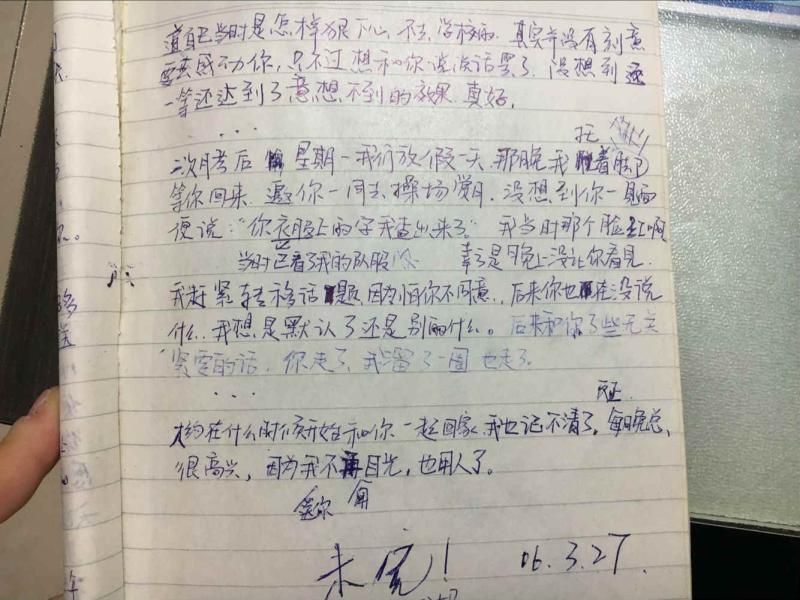 道自己当时是怎样狠下心不去学校的。其实并没有刻意
要去感动你,只不过想和你说说话罢了,没想到
一等还达到了意想不到的效果 真好。
...
二次月考后 星期一我们放假一天 那晚我着脸
等你回来 邀你一同去操场赏月,没想到你一见面
便说:"你衣服上的字我查出来了。" 我当时那个脸红啊
当时已看了我的队服 幸亏是晚上没让你看见
我赶紧转移话题,因为怕你不同意,后来你也没说
什么,我想是默认了还是别的什么。后来和你了些无关
紧要的话,你走了,我溜了一圈 也走了。
...
大约在什么时候开始和你一起回家 我也记不清了。每晚总
很高兴,因为我不再目光,也用人了。
等你
未完! 06.3.27.